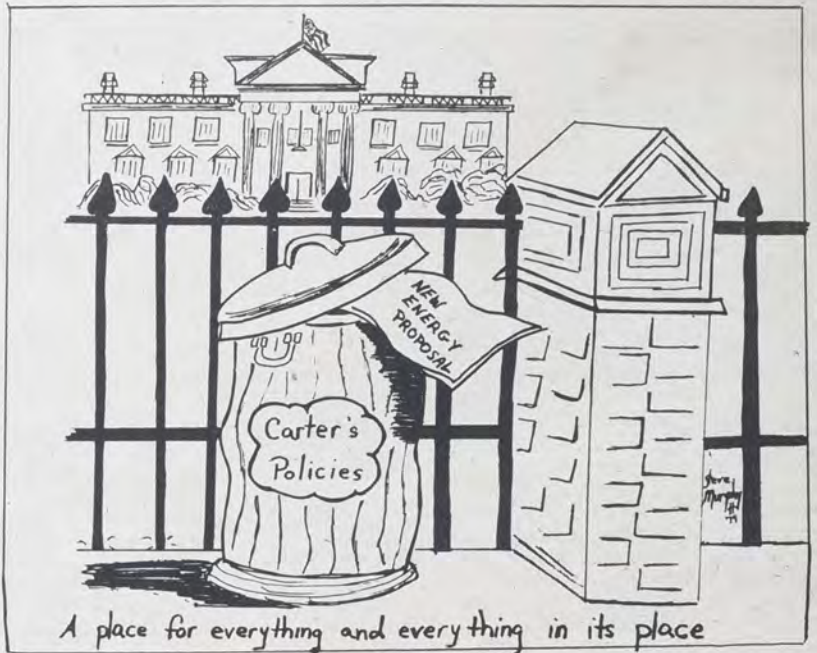 NEW
ENERGY
PROPOSAL
Carter's
Policies
Steve
Murphy
A place for everything and everything in its place